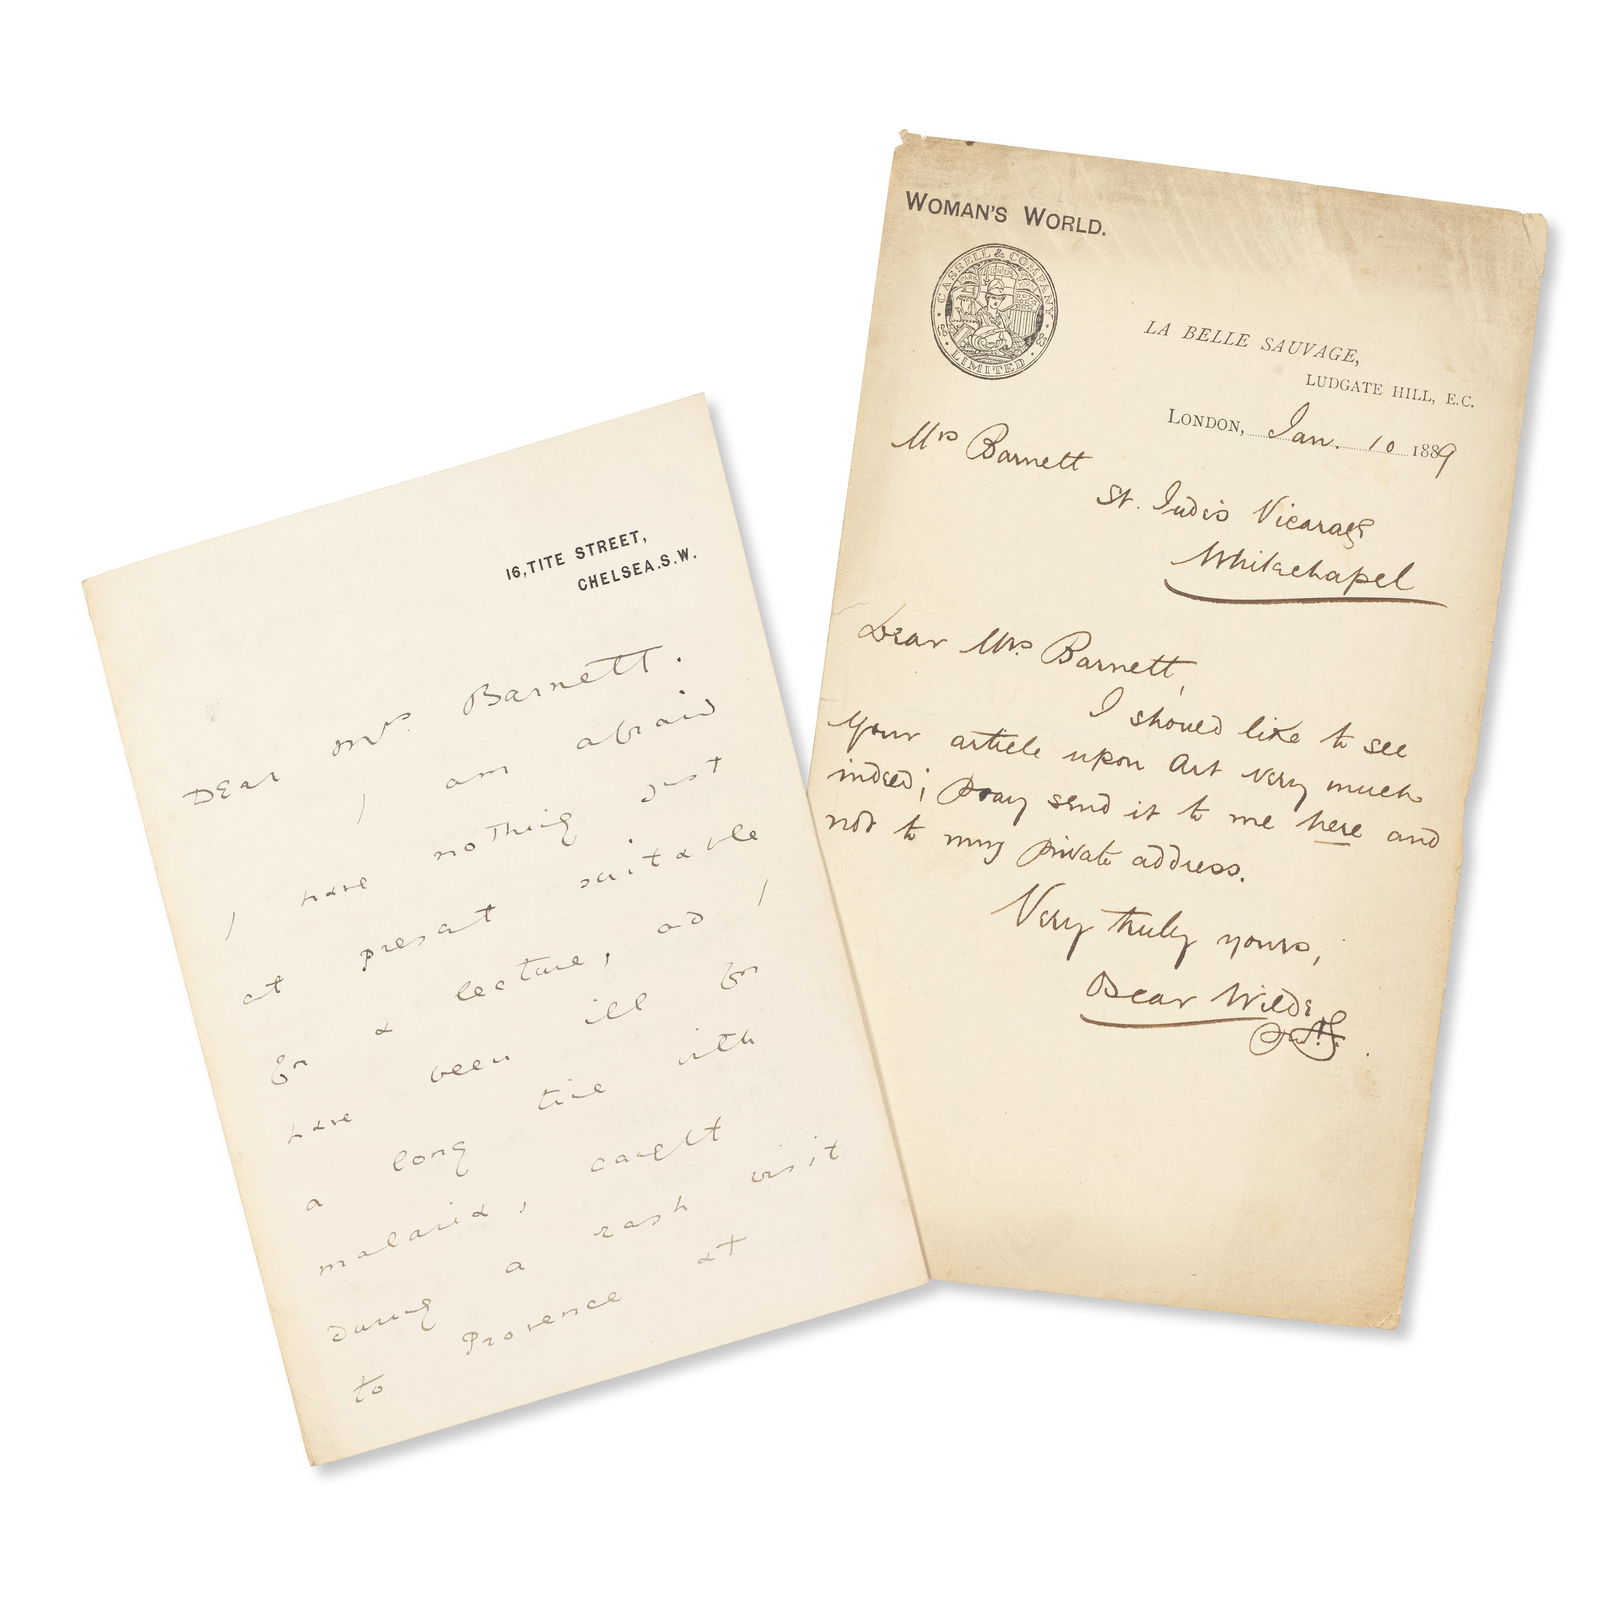 16, TITE STREET,
CHELSEA. S. W.
Dear Mrs. Barnett.
I am afraid
I have nothing just
at present suitable
for a lecture, and I
have been ill for
a long time with
malaria, caught
during a rash visit
to Provence at
WOMAN'S WORLD.
CASSELL & COMPANY
LIMITED
LA BELLE SAUVAGE,
LUDGATE HILL, E.C.
LONDON, Jan. 10 1889
Mrs Barnett
St. Jude's Vicarage
Whitechapel
Dear Mrs. Barnett,
I should like to see
your article upon Art very much
indeed; pray send it to me here and
not to my private address.
Very truly yours,
Oscar Wilde